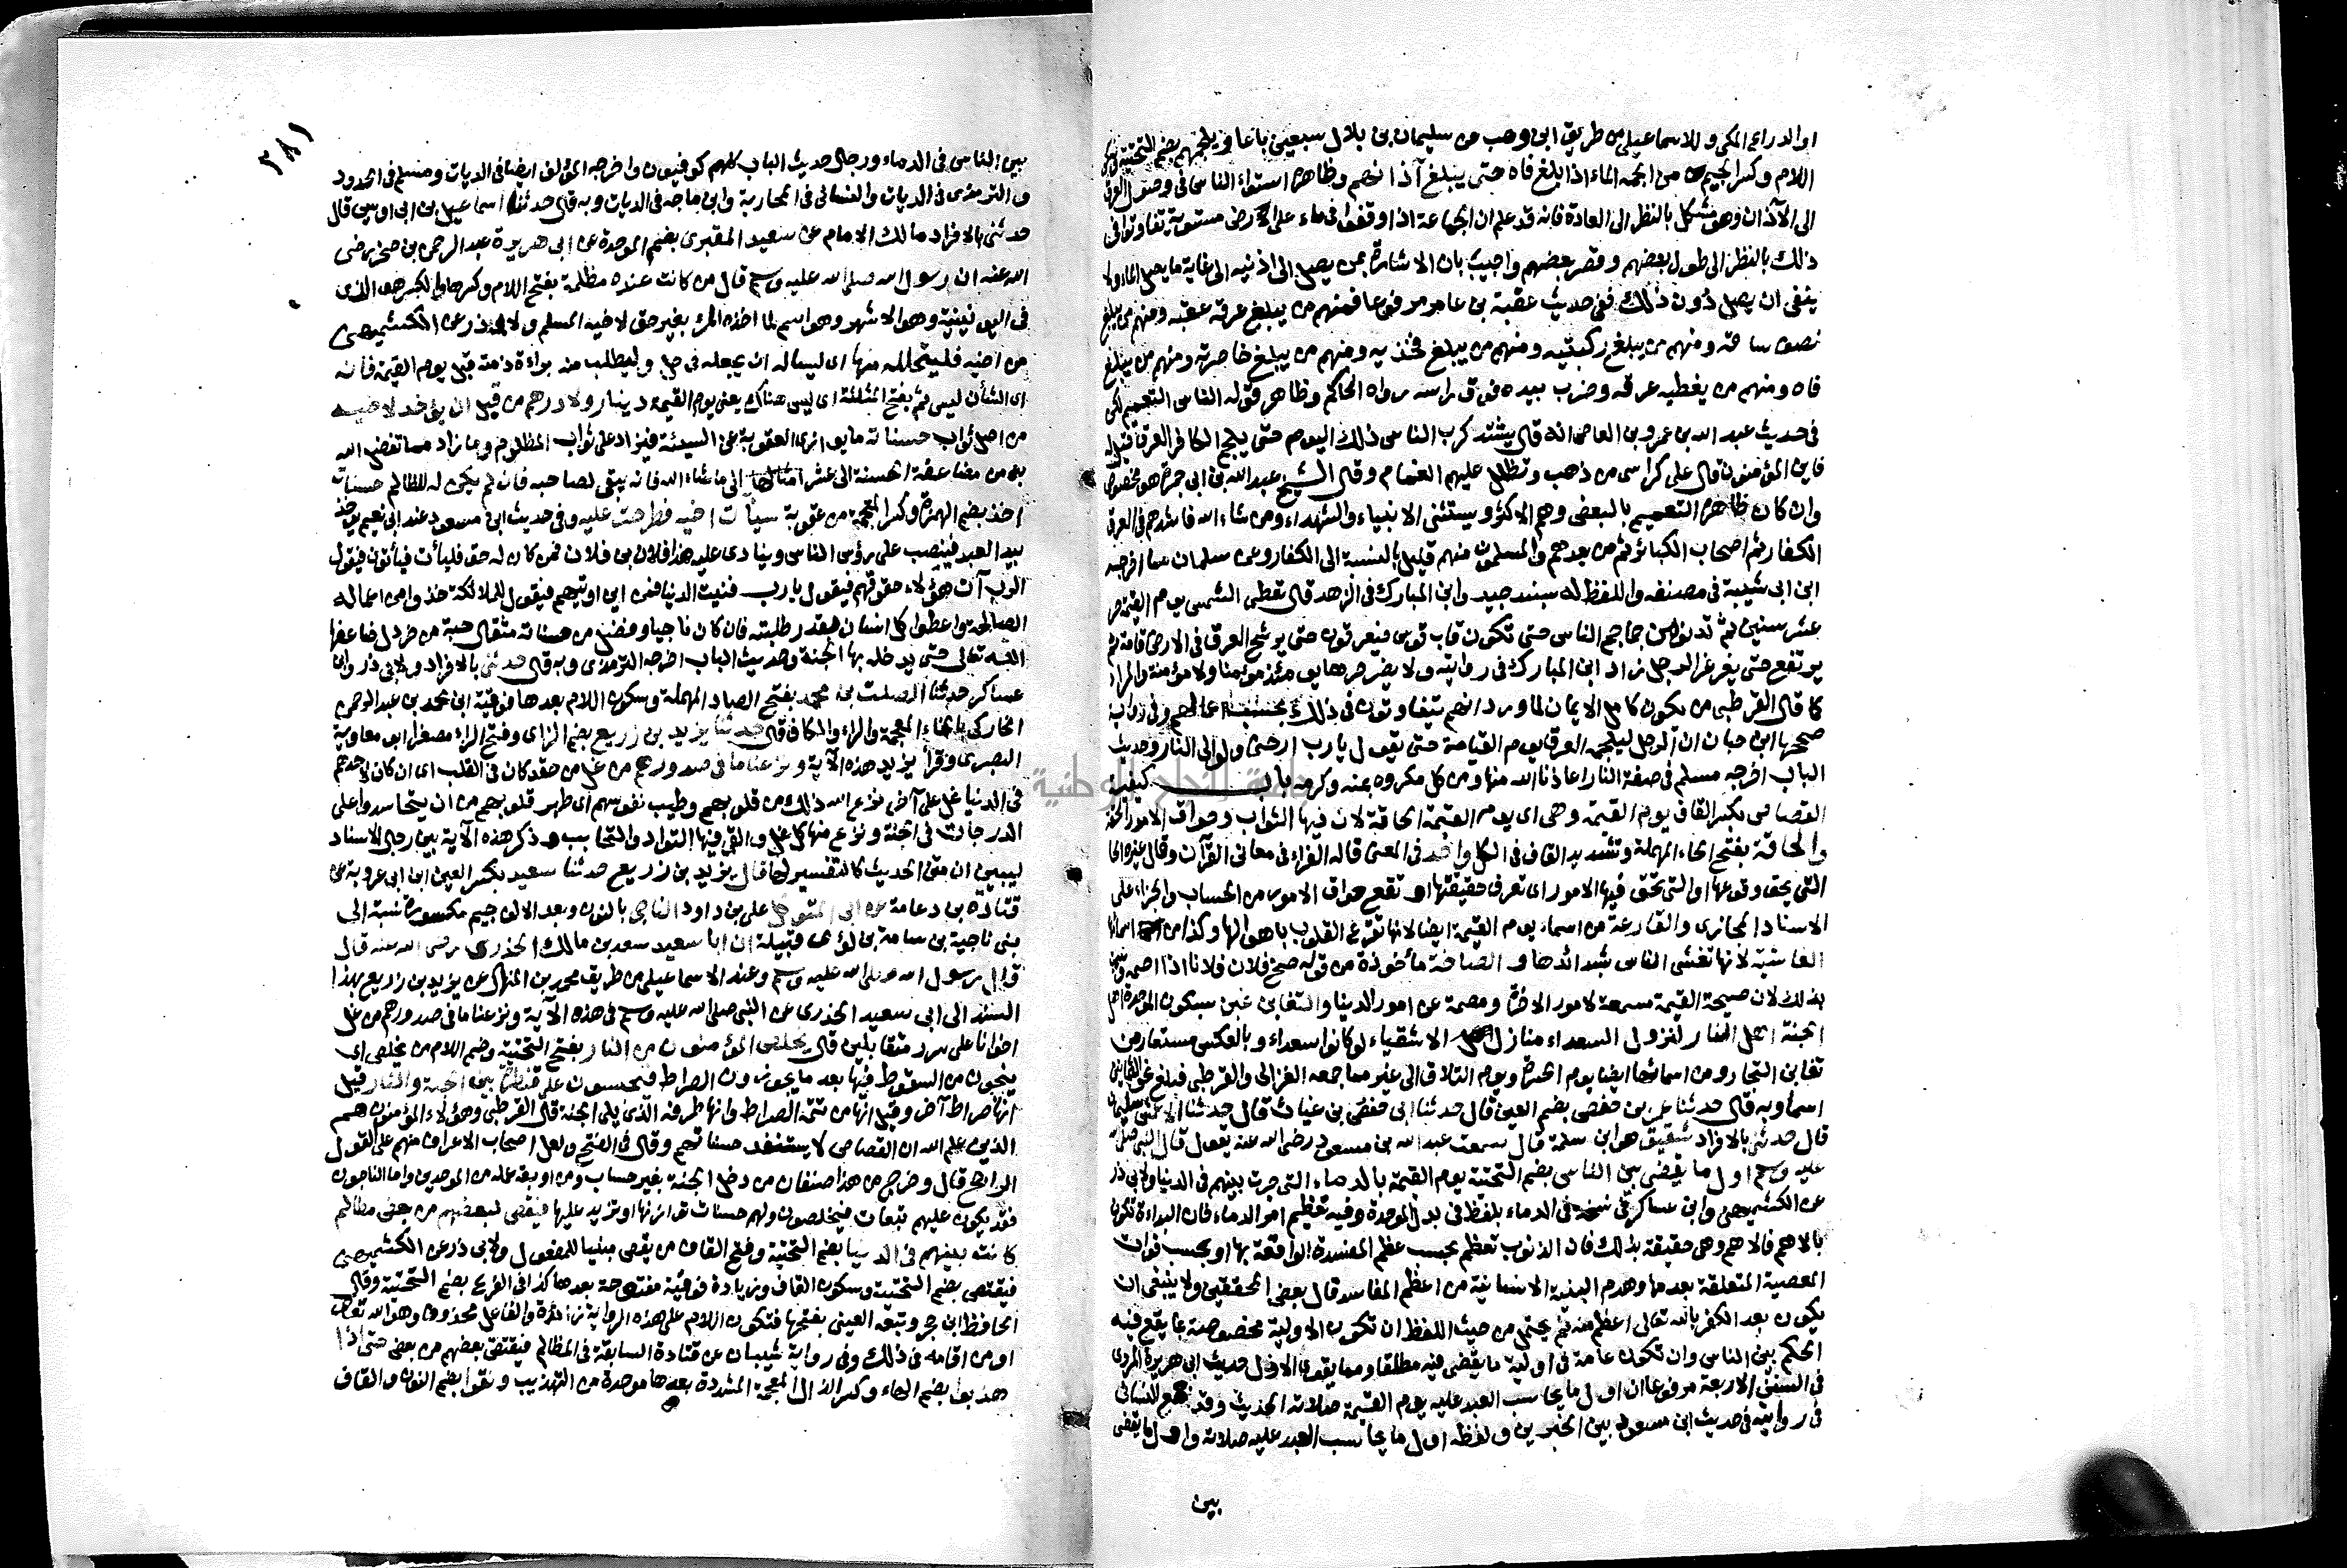 او الذراع المكي وللاسماعيلي من طريق ابن وهب عن سليمان بن بلال سبعين باعا ويلجمهم بضم التحتية وسكون
اللام وكسر الجيم من الجمه الماء اذا بلغ فاه حتى يبلغ آذانهم وظاهره استواء الناس في وصول العرق
الى الآذان وهو مشكل بالنظر الى العادة فانه قد علم ان الجماعة اذا وقفوا في ماء على ارض مستوية تفاوتوا في
ذلك بالنظر الى طول بعضهم وقصر بعضهم واجيب بان الاشارة بمن يصل الى اذنيه الى غاية ما يصل الماء ولا
ينفي ان يصل دون ذلك ففي حديث عقبة بن عامر مرفوعا فمنهم من يبلغ عرقه عقبه ومنهم من يبلغ
نصف ساقه ومنهم من يبلغ ركبتيه ومنهم من يبلغ فخذيه ومنهم من يبلغ خاصرته ومنهم من يبلغ
فاه ومنهم من يغطيه عرقه وضرب بيده فوق راسه رواه الحاكم وظاهر قوله الناس التعميم لكن
في حديث عبد الله بن عمرو بن العاص انه قال يشتد كرب الناس ذلك اليوم حتى يلجم الكافر العرق قيل له
فاين المؤمنون قال على كراسي من ذهب وتظلل عليهم الغمام وقال الشيخ عبد الله بن ابي جمرة هو مخصوص
وان كان ظاهره التعميم بالبعض وهم الاكثر ويستثنى الانبياء والشهداء ومن شاء الله فاشدهم في العرق
الكفار ثم اصحاب الكبائر ثم من بعدهم والمسلمون منهم قليل بالنسبة الى الكفار وعن سلمان مما اخرجه
ابن ابي شيبة في مصنفه واللفظ له بسند جيد وابن المبارك في الزهد قال تعطى الشمس يوم القيمة حر
عشر سنين ثم تدنو من جماجم الناس حتى تكون قاب قوس فيعرقون حتى يرشح العرق في الارض قامة ثم
يرتفع حتى يغرغر الرجل زاد ابن المبارك في روايته ولا يضر حرها يومئذ مؤمنا ولا مؤمنة والمراد
كما قال القرطبي من يكون كامل الايمان لما ورد انهم يتفاوتون في ذلك بحسب اعمالهم وفي رواية
صححها ابن حبان ان الرجل ليلجمه العرق يوم القيامة حتى يقول يارب ارحني ولو الى النار وحديث
الباب اخرجه مسلم في صفة النار اعاذنا الله منها ومن كل مكروه بمنه وكرمه باب كيفية
القصاص بكسر القاف يوم القيمة وهي اي يوم القيمة الحاقة لان فيها الثواب وحواق الامور الحقة
والحاقة بفتح الحاء المهملة وتشديد القاف في الكل واحد في المعنى قاله الفراء في معاني القرآن وقال غيره الحاقة
التي يحق وقوعها او التي تحق فيها الامور اي تعرف حقيقتها او تقع حواق الامور من الحساب والجزاء على
الاسناد المجازي والقارعة من اسماء يوم القيمة ايضا لانها تقرع القلوب باهوالها وكذا من اسمائها
الغاشية لانها تغشى الناس بشدائدها والصاخة مأخوذة من قوله صخ فلان فلانا اذا اصمه وسميت
بذلك لان صيحة القيمة مسمعة لامور الاخرة ومصمة عن امور الدنيا والتغابن غبن بسكون الموحدة اهل
الجنة اهل النار لنزول السعداء منازل الاشقياء لو كانوا سعداء وبالعكس مستعار من
تغابن التجار ومن اسمائها ايضا يوم الحسرة ويوم التلاق الى غير مما جمعه الغزالي والقرطبي فبلغ نحو الثمانين
اسما وبه قال حدثنا عمر بن حفص بضم العين قال حدثنا ابي حفص بن غياث قال حدثنا الاعمش سليمان
قال حدثني بالافراد شقيق هو ابن سلمة قال سمعت عبد الله بن مسعود رضي الله عنه يقول قال النبي صلى الله
عليه وسلم اول ما يقضى بين الناس بضم التحتية يوم القيمة بالدماء التي جرت بينهم في الدنيا ولابي ذر
عن الكشميهني وابن عساكر في نسخة في الدماء بلفظ في بدل الموحدة وفيه تعظيم امر الدماء فان البداءة تكون
بالاهم فالاهم وهي حقيقة بذلك فان الذنوب تعظم بحسب عظم المفسدة الواقعة بها او بحسب فوات
المعصية المتعلقة بعدمها وهدم البنية الانسانية من اعظم المفاسد قال بعض المحققين ولا ينبغي ان
يكون بعد الكفر بالله تعالى اعظم منه ثم يحتمل من حيث اللفظ ان تكون الاولية مخصوصة بما يقع فيه
الحكم بين الناس وان تكون عامة في اولية ما يقضى فيه مطلقا ومما يقوي الاول حديث ابي هريرة المروي
في السنن الاربعة مرفوعا ان اول ما يحاسب العبد عليه يوم القيمة صلاته الحديث وقد جمع النسائي
في روايته في حديث ابن مسعود بين الخبرين ولفظه اول ما يحاسب العبد عليه صلاته واول ما يقضى
بين
٣٨١
بين الناس في الدماء ورجال حديث الباب كلهم كوفيون واخرجه المؤلف ايضا في الديات ومسلم في الحدود
والترمذي في الديات والنسائي في المحاربة وابن ماجه في الديات وبه قال حدثنا اسماعيل بن ابي اويس قال
حدثني بالافراد مالك الامام عن سعيد المقبري بضم الموحدة عن ابي هريرة عبد الرحمن بن صخر رضي
الله عنه ان رسول الله صلى الله عليه وسلم قال من كانت عنده مظلمة بفتح اللام وكسرها والكسر هو الذي
في اليونينية وهو الاشهر وهو اسم لما اخذه المرء بغير حق لاخيه المسلم ولابي ذر عن الكشميهني
من اخيه فليتحلله منها اي ليساله ان يجعله في حل وليطلب منه براءة ذمته قبل يوم القيمة فانه
اي الشأن ليس ثم بفتح المثلثة اي ليس هناك يعني يوم القيمة دينار ولا درهم من قبل ان يؤخذ لاخيه
من اصل ثواب حسناته ما يوازي العقوبة عن السيئة فيزاد على ثواب المظلوم وما زاد مما تفضل الله
به من مضاعفة الحسنة الى عشر امثالها الى ما شاء الله فانه يبقى لصاحبه فان لم يكن له للظالم حسنات
اخذ بضم الهمزة وكسر المعجمة من عقوبة سيآت اخيه فطرحت عليه وفي حديث ابن مسعود عند ابي نعيم يؤخذ
بيد العبد فينصب على رؤس الناس وينادي عليه هذا فلان بن فلان فمن كان له حق فليأت فيأتون فيقول
الرب آت هؤلاء حقوقهم فيقول يا رب فنيت الدنيا فمن اين اوتيهم فيقول للملائكة خذوا من اعماله
الصالحة واعطوا كل انسان بقدر طلبته فان كان ناجيا وفضل من حسناته مثقال حبة من خردل ضاعفها
الله تعالى حتى يدخله بها الجنة وحديث الباب اخرجه الترمذي وبه قال حدثني بالافراد ولابي ذر وابن
عساكر حدثنا الصلت بن محمد بفتح الصاد المهملة وسكون اللام بعدها فوقية ابن محمد بن عبد الرحمن
الخاركي بالخاء المعجمة والراء والكاف قال حدثنا يزيد بن زريع بضم الزاي وفتح الراء مصغرا ابو معاوية
البصري وقرأ يزيد هذه الآية ونزعنا ما في صدورهم من غل من حقد كان في القلب اي ان كان لاحدهم
في الدنيا غل على آخر نزع الله ذلك من قلوبهم وطيب نفوسهم اي طهر قلوبهم من ان يتحاسدوا على
الدرجات في الجنة ونزع منها كل غل والقى فيها التواد والتحابب وذكر هذه الآية بين رجال الاسناد
ليبين ان متن الحديث كالتفسير لها قال يزيد بن زريع حدثنا سعيد بكسر العين ابن ابي عروبة عن
قتادة بن دعامة عن ابي المتوكل علي بن داود الناجي بالنون وبعد الالف جيم مكسورة نسبة الى
بني ناجية بن سامة بن لؤي قبيلة ان ابا سعيد سعد بن مالك الخدري رضي الله عنه قال
قال رسول الله صلى الله عليه وسلم وعند الاسماعيلي من طريق محمد بن المنهال عن يزيد بن زريع بهذا
السند الى ابي سعيد الخدري عن النبي صلى الله عليه وسلم في هذه الآية ونزعنا ما في صدورهم من غل
اخوانا على سرر متقابلين قال يخلص المؤمنون من النار بفتح التحتية وضم اللام من يخلص اي
ينجون من السقوط فيها بعد ما يجوزون الصراط فيحبسون على قنطرة بين الجنة والنار قيل
انها صراط آخر وقيل انها من تتمة الصراط وانها طرفه الذي يلي الجنة قال القرطبي وهؤلاء المؤمنون هم
الذين علم الله ان القصاص لا يستنفد حسناتهم وقال في الفتح ولعل اصحاب الاعراف منهم على القول
الراجح قال وخرج من هذا صنفان من دخل الجنة بغير حساب ومن اوبقه عمله من الموحدين واما الناجون
فقد يكون عليهم تبعات فيخلصون ولهم حسنات توازنها او تزيد عليها فيقص لبعضهم من بعض مظالم
كانت بينهم في الدنيا بضم التحتية وفتح القاف من يقص مبنيا للمفعول ولابي ذر عن الكشميهني
فيقتص بضم التحتية وسكون القاف وزيادة فوقية مفتوحة بعدها كذا في الفرع بضم التحتية وقال
الحافظ ابن حجر وتبعه العيني بفتحها فتكون اللام على هذه الرواية زائدة والفاعل محذوف وهو الله تعالى
او من اقامه في ذلك وفي رواية شيبان عن قتادة السابقة في المظالم فيقتص بعضهم من بعض حتى اذا
هذبوا بضم الهاء وكسر الذال المعجمة المشددة بعدها موحدة من التهذيب ونقوا بضم النون والقاف
جامعة النجاح الوطنية